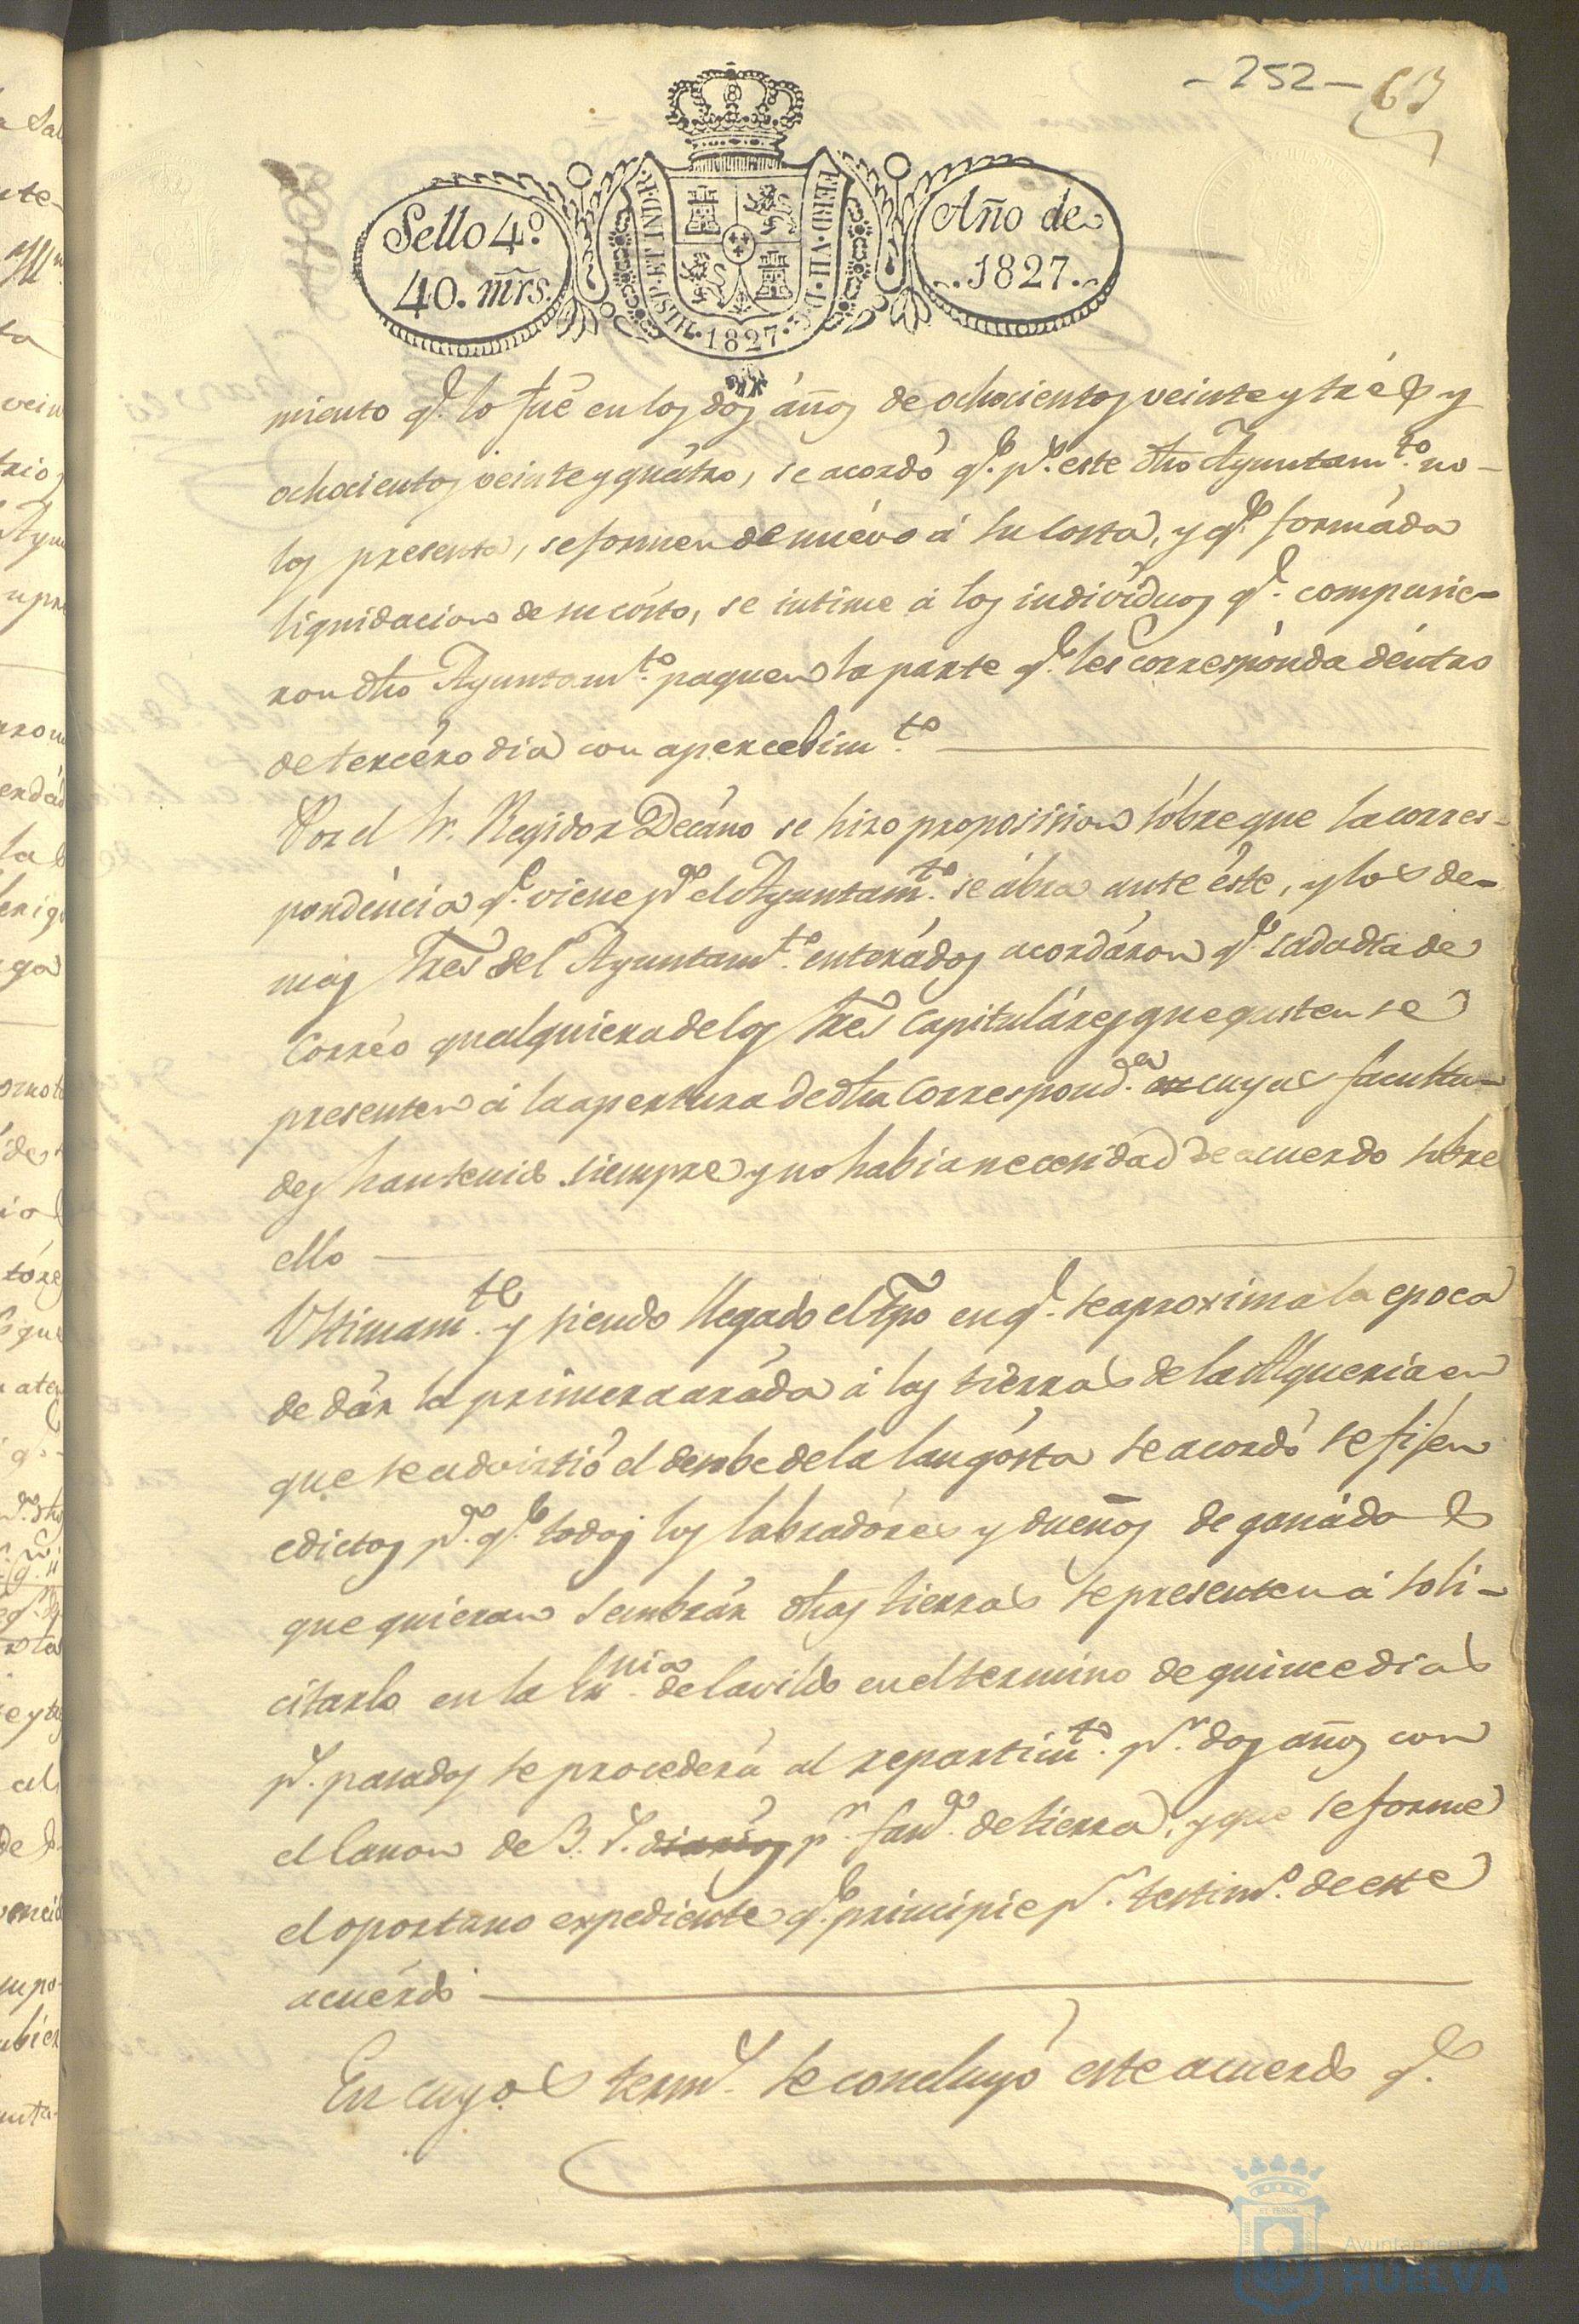 - 252 - 63
Sello 4º
40. mrs.
HISP. ET IND. R.
FERD. VII. D. G.
1827.
Año de
1827.
miento q.e lo fué en los dos áños de ochocientos veinte y trés y
ochocientos veinte y quátro, se acordó q.e p.r este dho Ayuntam.to no
los presenta, se formen de nuévo á su costa, y q.e formáda
liquidacion de su cósto, se intime á los indivíduos q.e compusie-
ron dho Ayuntam.to paguen la parte q.e les correspónda déntro
de tercéro dia con apercebim.to
Por el Sr. Regidor Decáno se hizo proposision sóbre que la corres-
pondéncia q.e viene p.a el Ayuntam.to se ábra ante éste, y los de-
más Sres del Ayuntam.to enterádos acordáron q.e cada dia de
Corréo qualquiera de los Sres Capituláres que gusten se
presenten á la apertura de dha Correspond.a cuyas faculta-
des han tenido siempre y no habia necesidad de acuerdo sobre
ello
Ultimam.te y siendo llegado el tpo en q.e se aproxima la epoca
de dár la primera aráda á las tierras de la Alqueria en
que se advirtió el desobe de la langósta se acordó se fijen
edictos p.a q.e todos los labradóres y dueños de ganádo
que quieran sembrár dhas tierras se presenten á soli-
citarlo en la Esc.nia de Cavildo en el termino de quince dias
p.s pasados se procederá al repartim.to p.r dos años con
el Canon de 3. r. diarios p.r fan.a de tierra, y que se forme
el oportuno expediénte q.e principie p.r testim.o de este
acuérdo
En cuyos term.s se concluyó este acuerdo q.e
Ayuntamiento
HUELVA